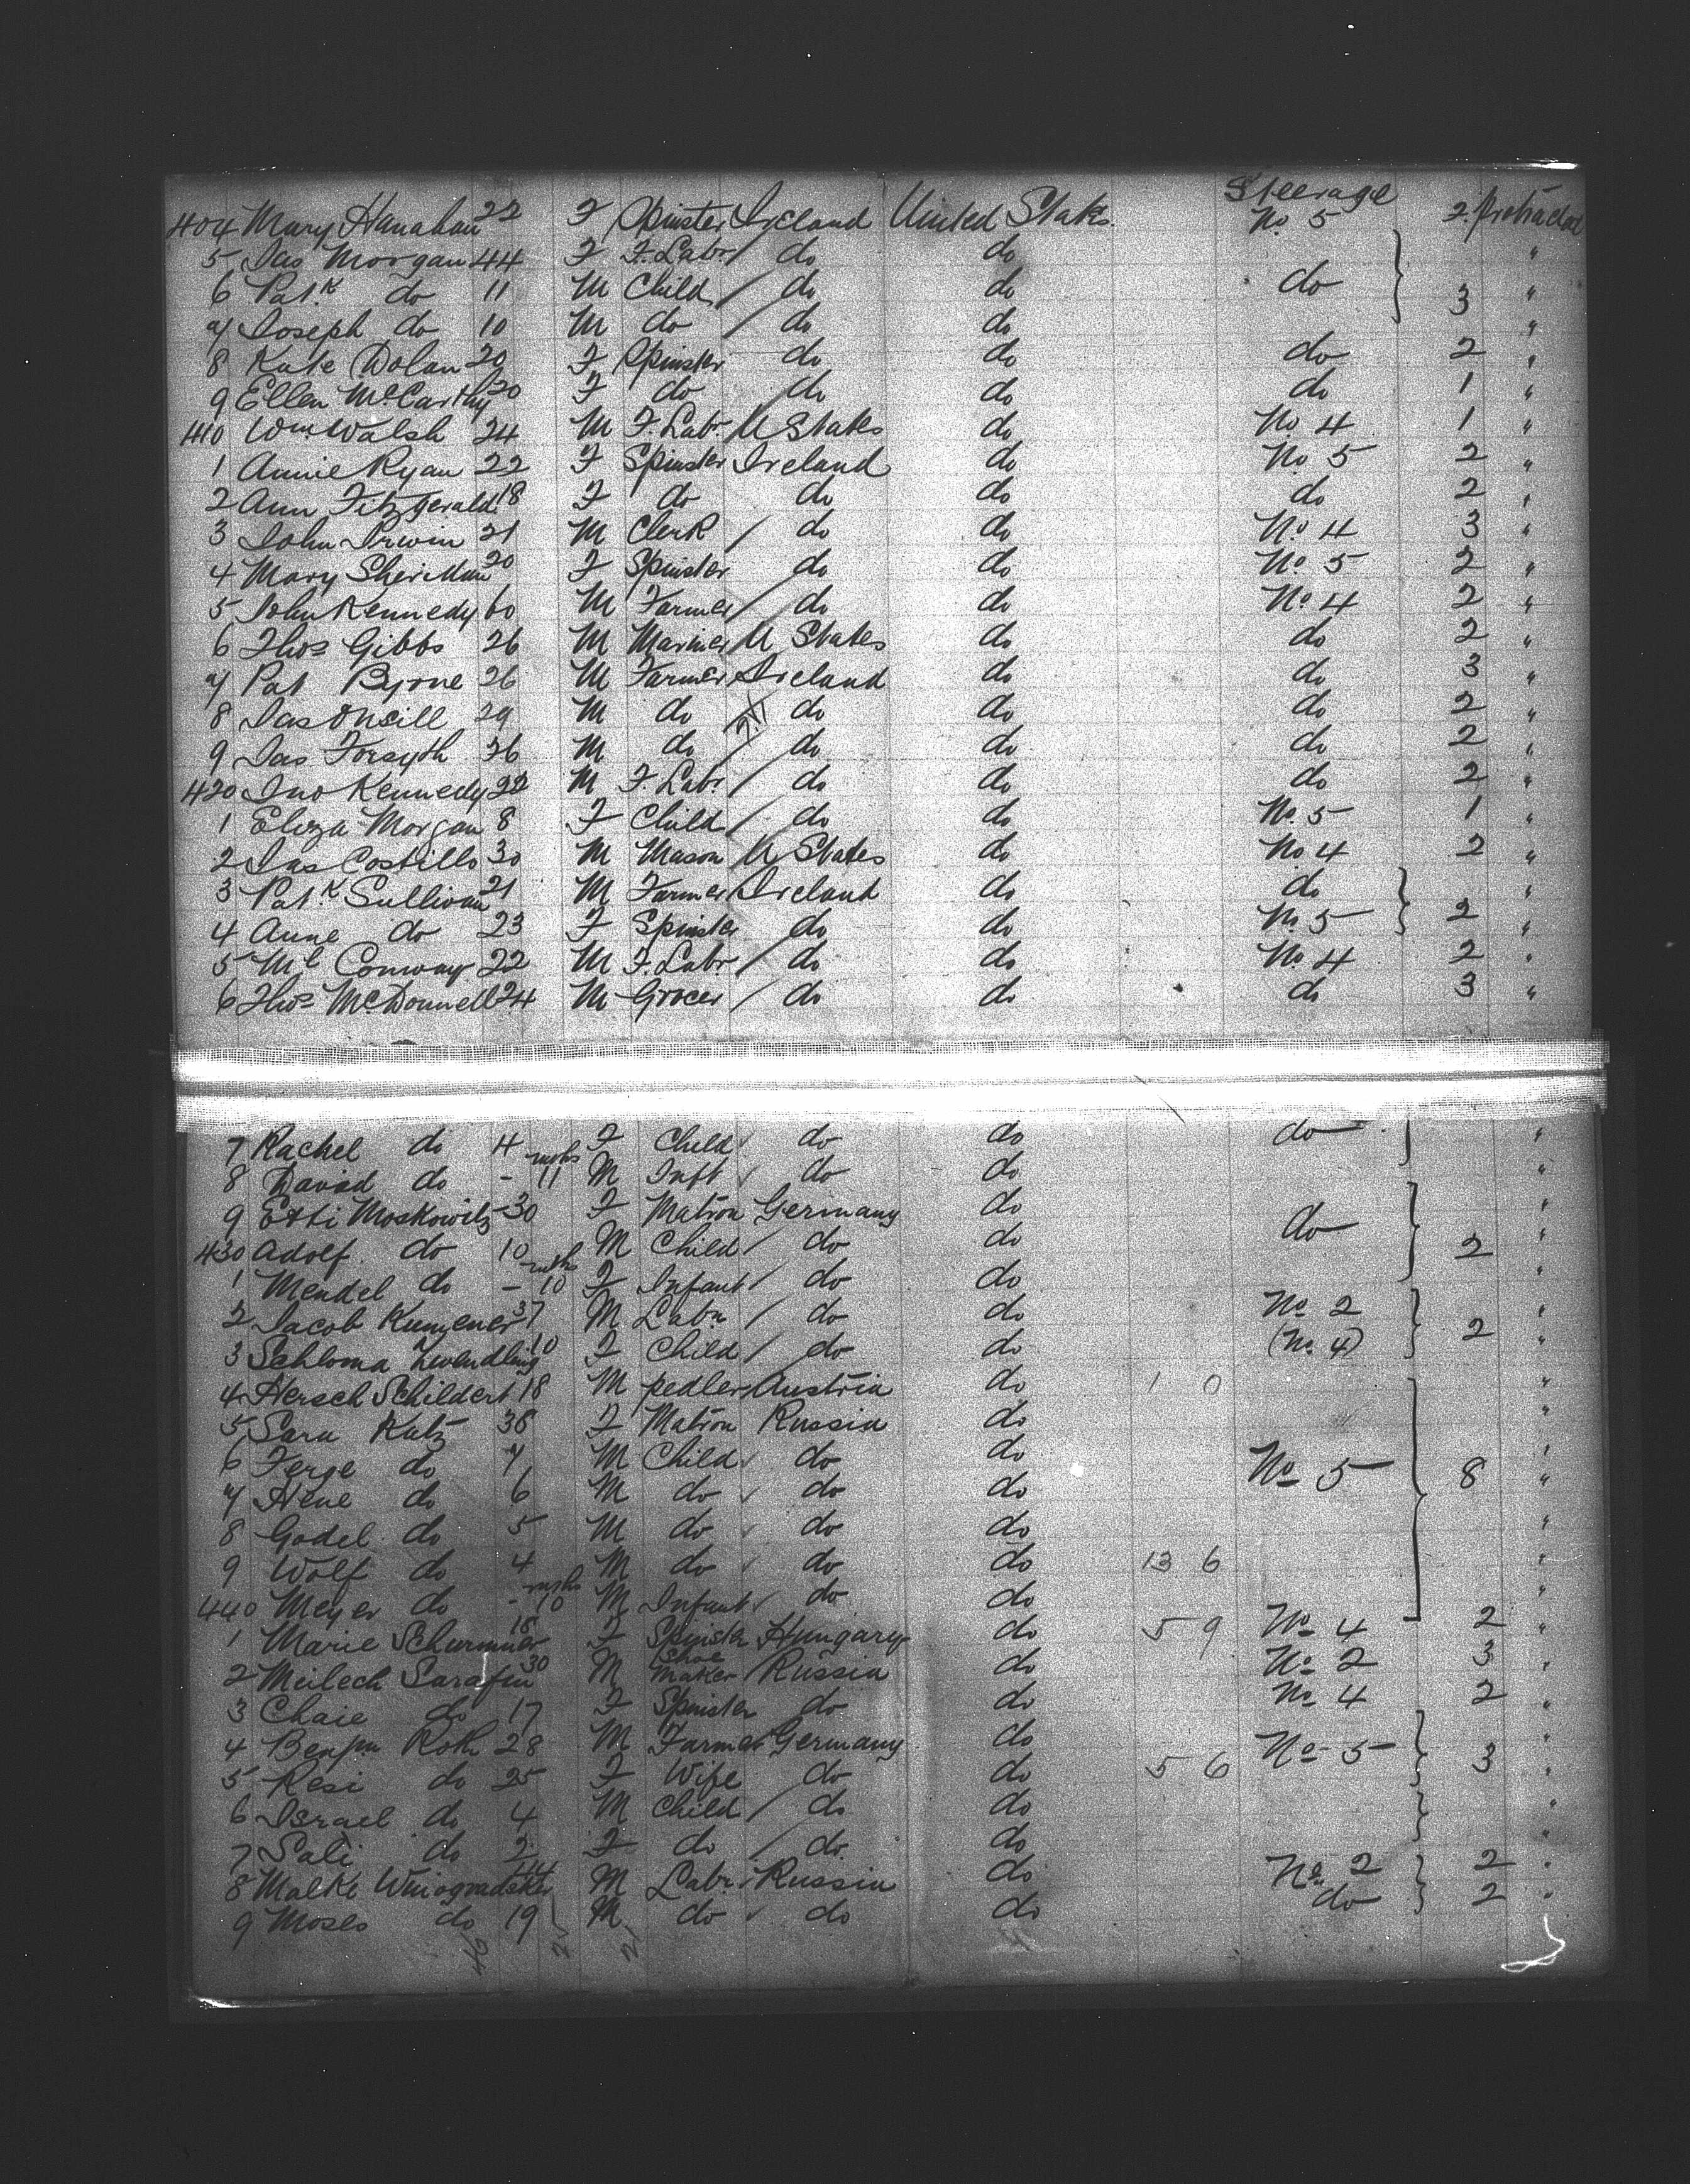 Steerage
404 Mary Hanahan 22 F Spinster Ireland United States No. 5 2 Protracted
5 Jas Morgan 44 F F. Labr / do do "
6 Patk do 11 M Child / do do do 3 "
7 Joseph do 10 M do / do do "
8 Kate Dolan 20 F Spinster do do do 2 "
9 Ellen McCarthy 20 F do do do do 1 "
410 Wm Walsh 24 M F. Labr U States do No 4 1 "
1 Annie Ryan 22 F Spinster Ireland do No 5 2 "
2 Ann Fitzgerald 18 F do do do do 2 "
3 John Irwin 21 M Clerk / do do No 4 3 "
4 Mary Sheridan 20 F Spinster do do No 5 2 "
5 John Kennedy 60 M Farmer / do do No 4 2 "
6 Thos Gibbs 26 M Mariner U States do do 2 "
7 Pat Byrne 26 M Farmer Ireland do do 3 "
8 Jas ONeill 29 M do do do do 2 "
9 Jas Forsyth 36 M do / do do do 2 "
420 Jno Kennedy 22 M F. Labr / do do do 2 "
1 Eliza Morgan 8 F Child / do do No. 5 1 "
2 Jas Costillo 30 M Mason U States do No 4 2 "
3 Patk Sullivan 21 M Farmer Ireland do do "
4 Anne do 23 F Spinster do do No. 5 2 "
5 Ml Conway 22 M F. Labr / do do No. 4 2 "
6 Thos McDonnell 24 M Grocer / do do do 3 "
7 Rachel do 4 F Child do do do "
8 David do - 11 mths M Inft do do "
9 Etti Moskowitz 30 F Matron Germany do "
430 Adolf do 10 M Child / do do do 2 "
1 Mendel do - 10 mths F Infant / do do "
2 Jacob 37 M Labr / do do No 2 "
3 Schloma 10 F Child / do do (No. 4) 2 "
4 Hersch Schildert 18 M pedler Austria do 1 0 "
5 Sara Katz 38 F Matron Russia do "
6 Ferge do 7 M Child do do No 5 8 "
7 Hene do 6 M do do do "
8 Godel do 5 M do do do "
9 Wolf do 4 M do do do 13 6 "
440 Meyer do - 10 mths M Infant do do "
1 Marie 18 F Spinster Hungary do 5 9 No 4 2 "
2 Meilech Sarafin 30 M Shoe Maker Russia do No 2 3 "
3 Chaie do 17 F Spinster do do No 4 2 "
4 Benjm Roth 28 M Farmer Germany do No 5 "
5 Resi do 25 F Wife do do 5 6 3 "
6 Israel do 4 M Child / do do "
7 Sali do 2 F do / do do "
8 Malke Winogradsker 44 M Labr Russia do No 2 2 "
9 Moses do 19 M do do do do 2 "